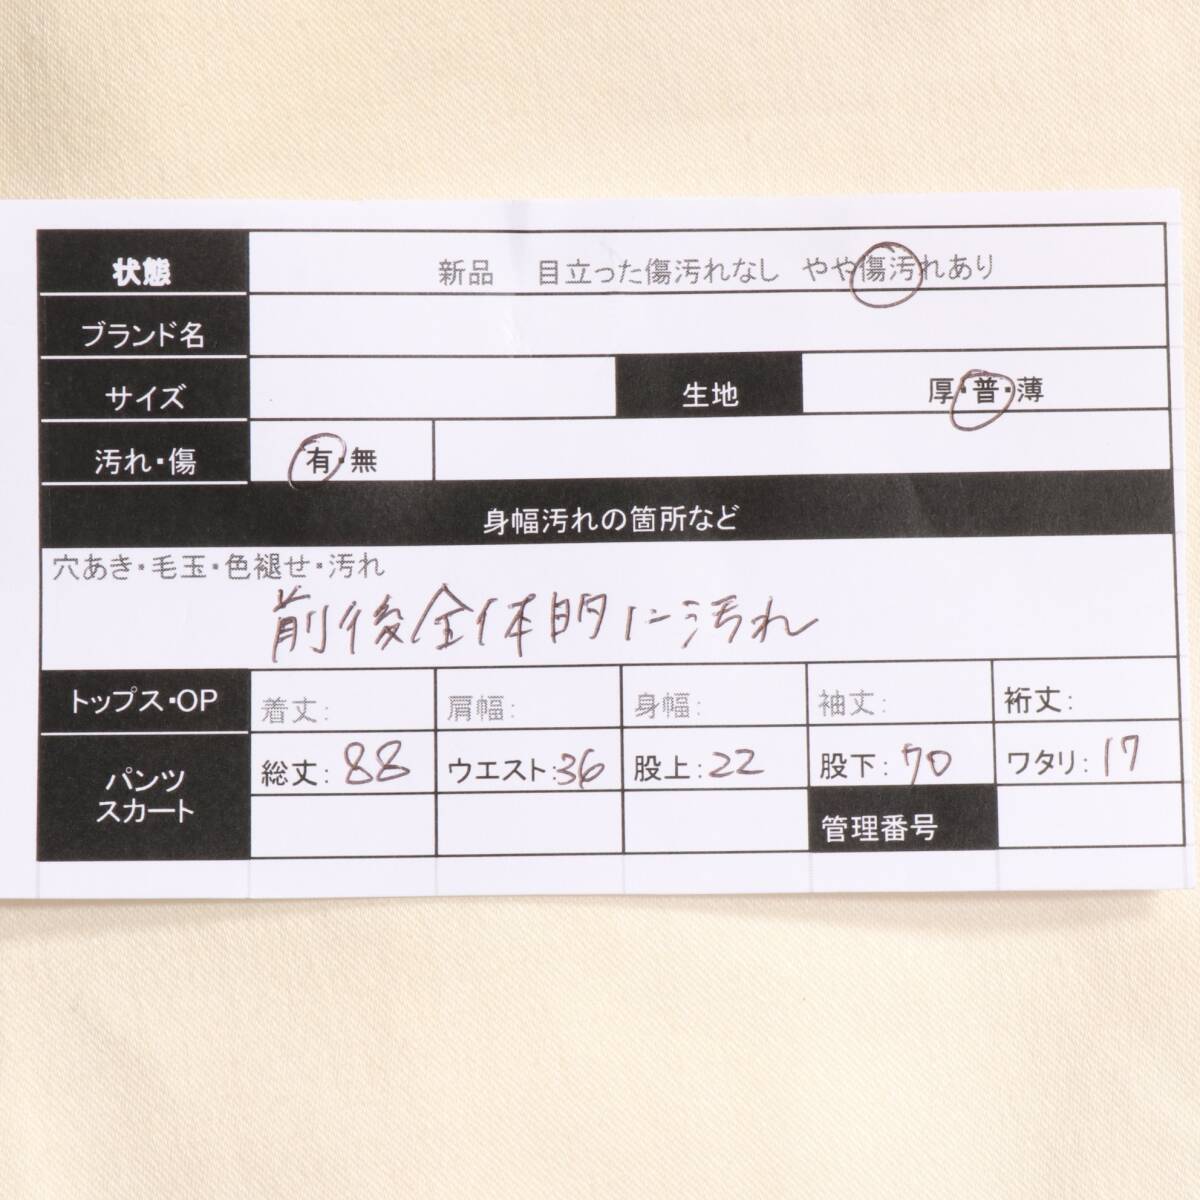 状態 新品 目立った傷汚れなし やや傷汚れあり
ブランド名
サイズ 生地 厚・普・薄
汚れ・傷 有・無
身幅汚れの箇所など
穴あき・毛玉・色褪せ・汚れ
前後全体的に汚れ
トップス・OP 着丈: 肩幅: 身幅: 袖丈: 裄丈:
パンツ スカート 総丈:88 ウエスト:36 股上:22 股下:70 ワタリ:17
管理番号